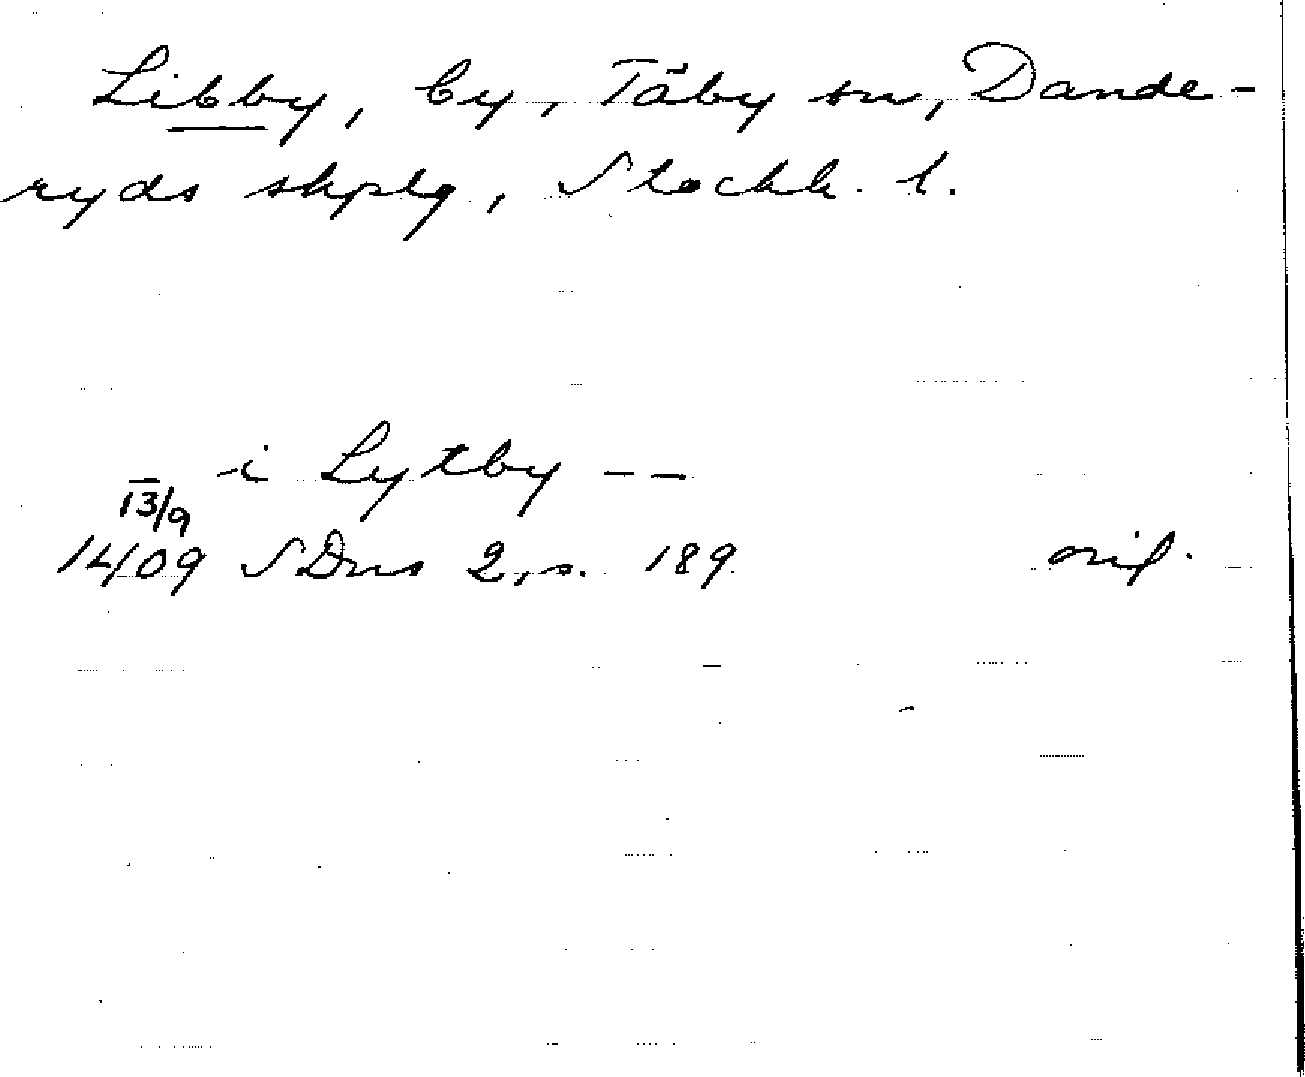 Libby, by, Täby sn, Dande-
ryds skplg, Stockh. l.
i Lytby --
13/9
1409 SDns 2, s. 189 orig.